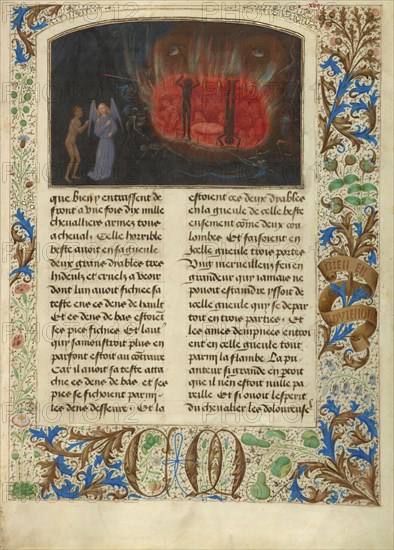 que bien y entraissent de
front a une fois dix mille
chevalliers armez tous
a cheval. Celle horrible
beste avoit en sa gueule
deux grans diables tres
hideulx et cruelz a veoir
dont lun avoit fichee sa
teste ens es dens de hault
Et ens es dens de bas estoient
ses piez fichiez. Et laut'
qui samonstroit plus en
parfont estoit au contraire
Car il avoit sa teste atta
chie es dens de bas et ses
piez se fichoient parmi
les dens desseure. Et la
estoient ces deux diables
en la gueule de celle beste
ensement come deux cou
lombes Et faisoient en
celle gueule trois portes
Ung merveilleux feu en
grandeur qui jamais ne
pouoit estaindre yssoit de
celle gueule qui se depar
toit en trois parties. Et
les ames dempnees entroi
ent en celle gueule tout
parmi la flambe. La pu
anteur si grande en yssoit
que il nen estoit nulle pa
reille. Et si ouoit lesperit
du chevalier les doloureuses
BIEN EN
AVIENGNE
CM